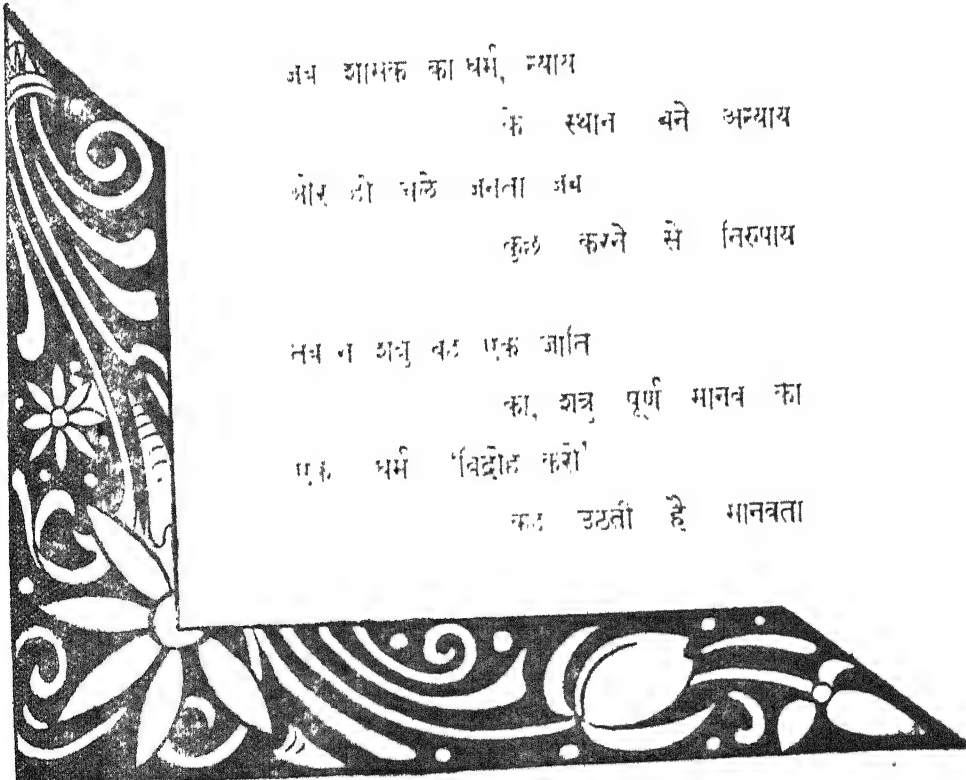 जब शासक का धर्म, न्याय
के स्थान बने अन्याय
और हो चले जनता जब
कुछ करने से निरुपाय
तब न शत्रु वह एक जाति
का, शत्रु पूर्ण मानव का
एक धर्म 'विद्रोह करो'
कह उठती है मानवता